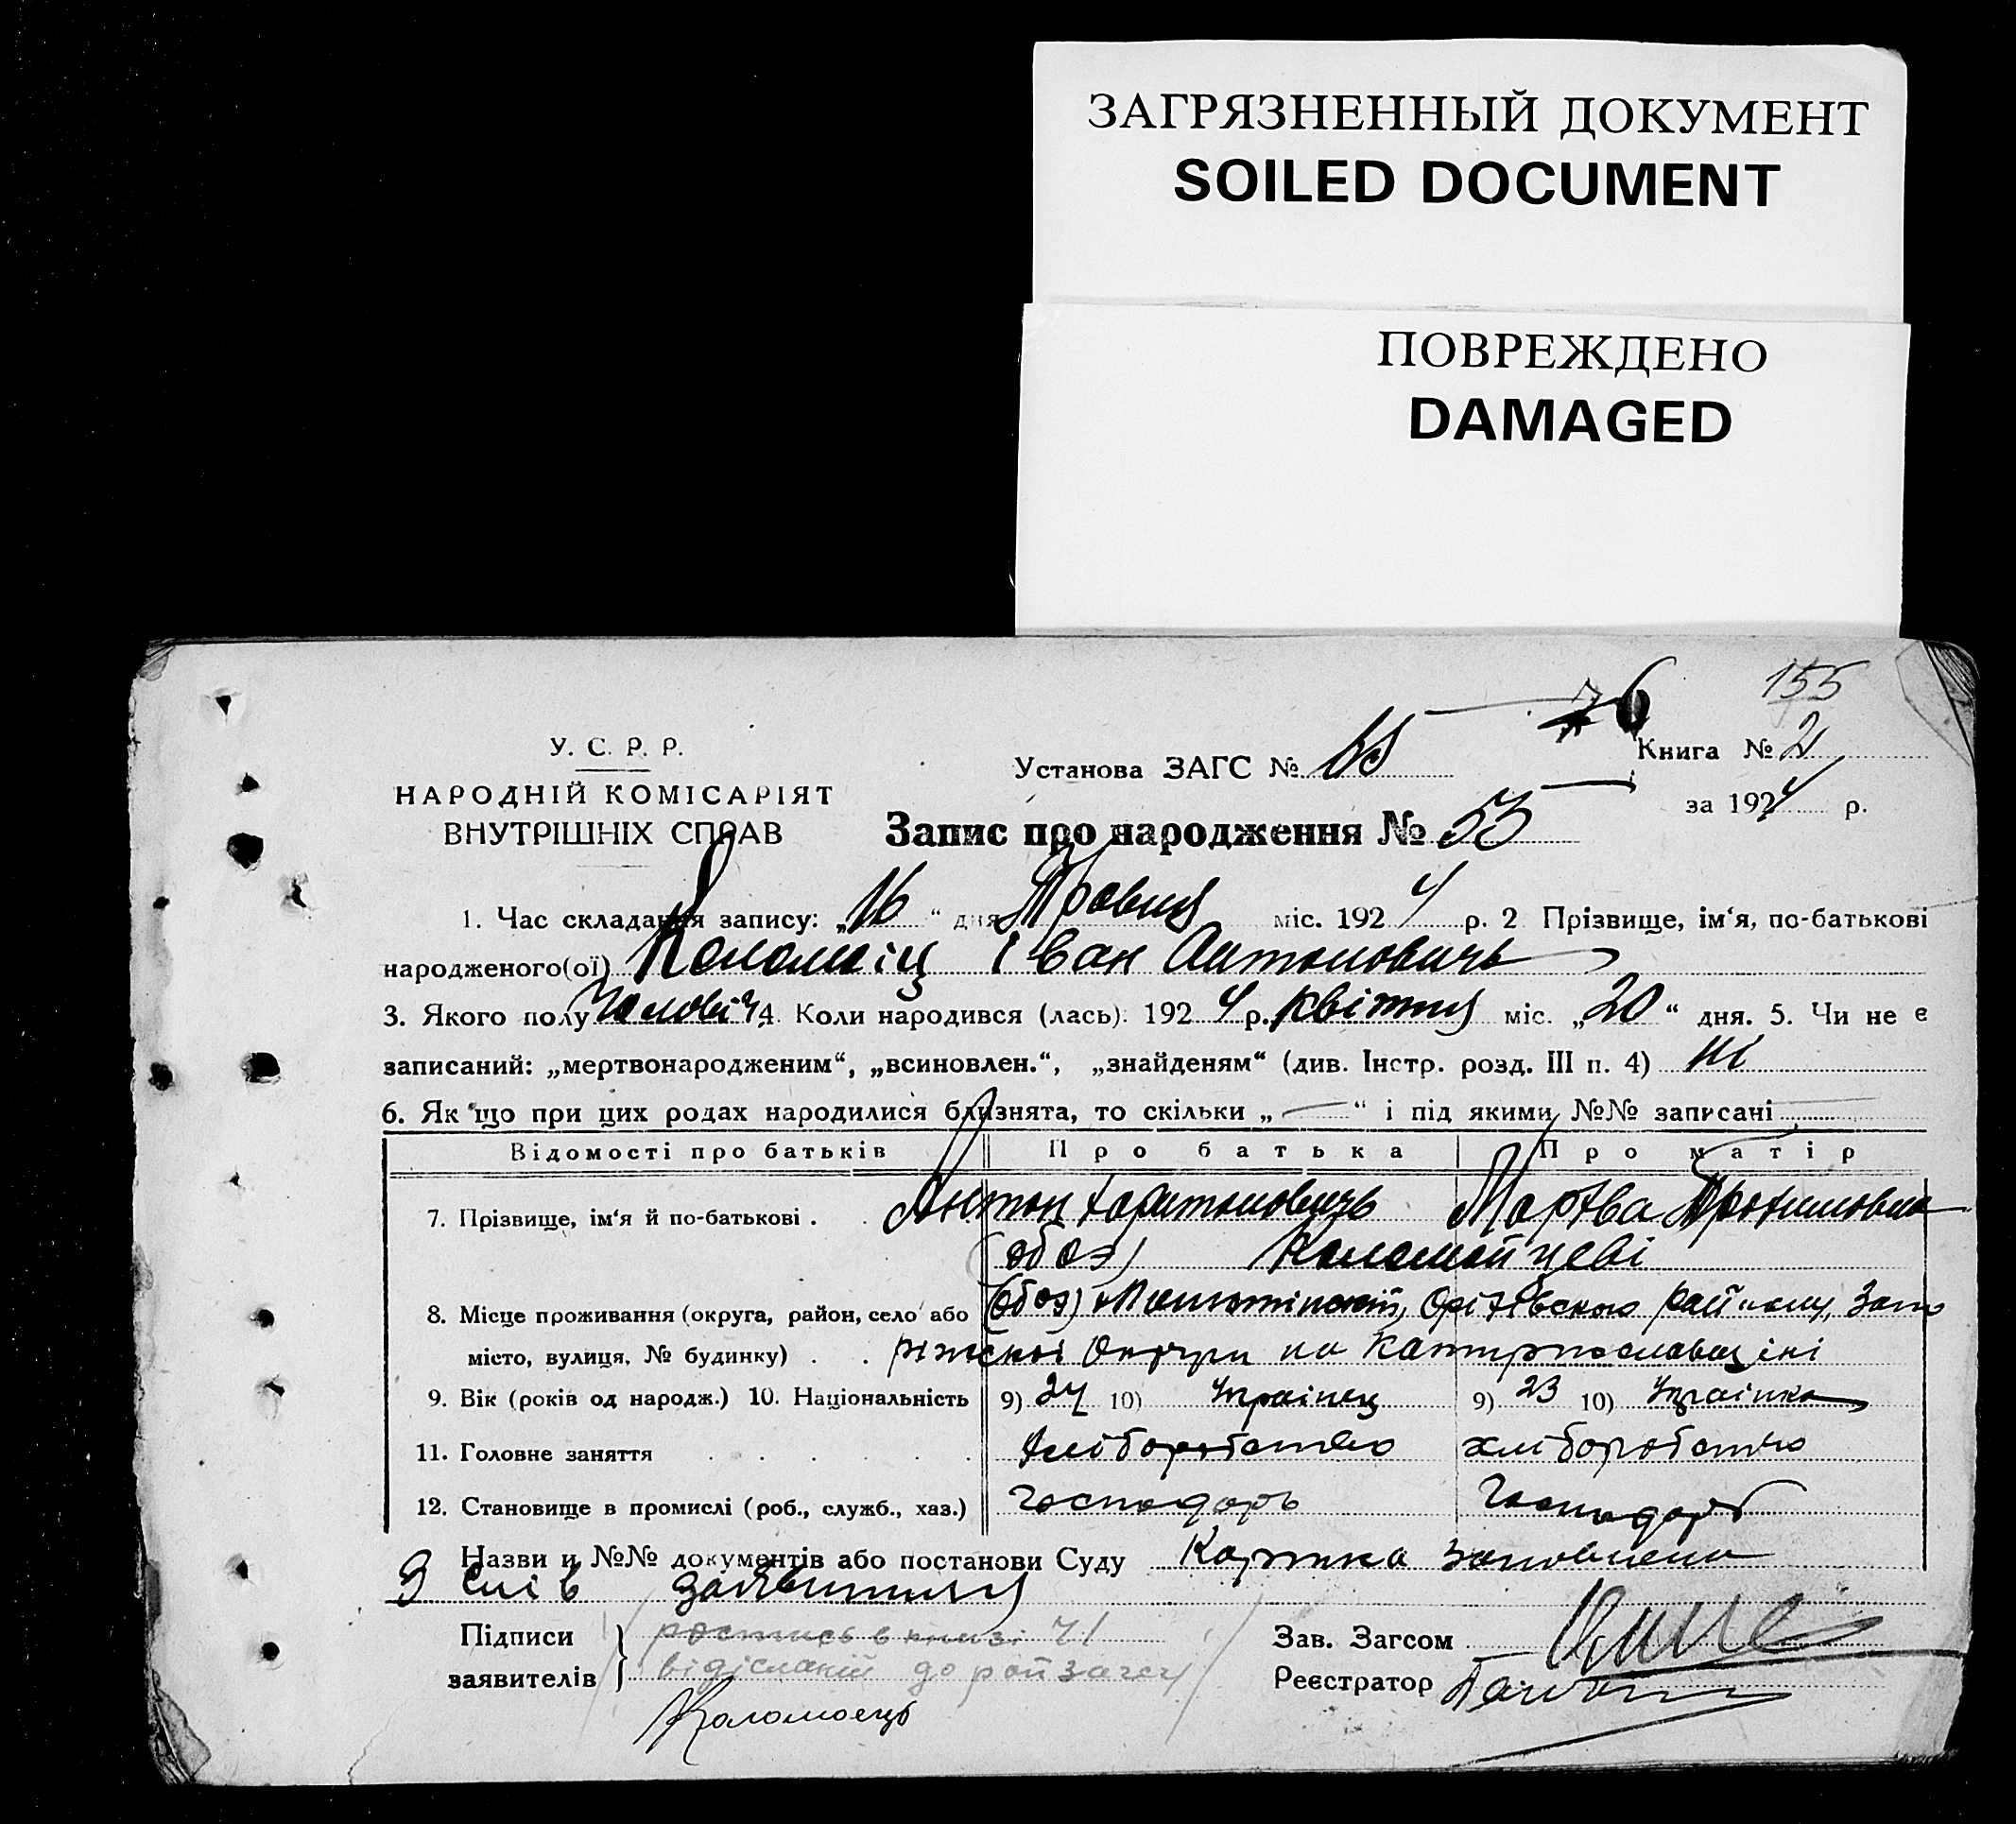 ЗАГРЯЗНЕННЫЙ ДОКУМЕНТ
SOILED DOCUMENT
ПОВРЕЖДЕНО
DAMAGED
155
У. С. Р. Р.
НАРОДНІЙ КОМІСАРІЯТ
ВНУТРІШНІХ СПРАВ
Установа ЗАГС №
Книга № 2
за 1924 р.
Запис про народження № 55
1. Час складання запису: „16“ дня Травня міс. 1924 р. 2 Прізвище, ім‘я, по-батькові
народженого(ої) Коломієць Іван Антоновичь
3. Якого полу Чоловіч. 4. Коли народився (лась). 1924 р. Квітня міс. „20“ дня. 5. Чи не є
записаний: „мертвонародженим“, „всиновлен.“, „знайденям“ (див. Інстр. розд. III п. 4) ні
6. Як що при цих родах народилися близнята, то скільки „—“ і під якими №№ записані
Відомості про батьків Про батька Про матір
7. Прізвище, ім‘я й по-батькові . Антон Харитоновичь Марѳва Трохимовна
(обоє) Коломойцеві
8. Місце проживання (округа, район, село або (обоє) Оріхівського району, Запо
місто, вулиця, № будинку) . . ріжської Округи на Катеринославщині
9. Вік (років од народж.) 10. Національність 9) 24 10) Українец 9) 23 10) Українка
11. Головне заняття хліборобство хліборобство
12. Становище в промислі (роб., служб., хаз.) господарь господарь
Назви и №№ документів або постанови Суду Картка заповнена
З слів заявителя
Підписи
заявителів
роспись в книзі
відісланій до райзагсу
Коломоець
Зав. Загсом
Реєстратор